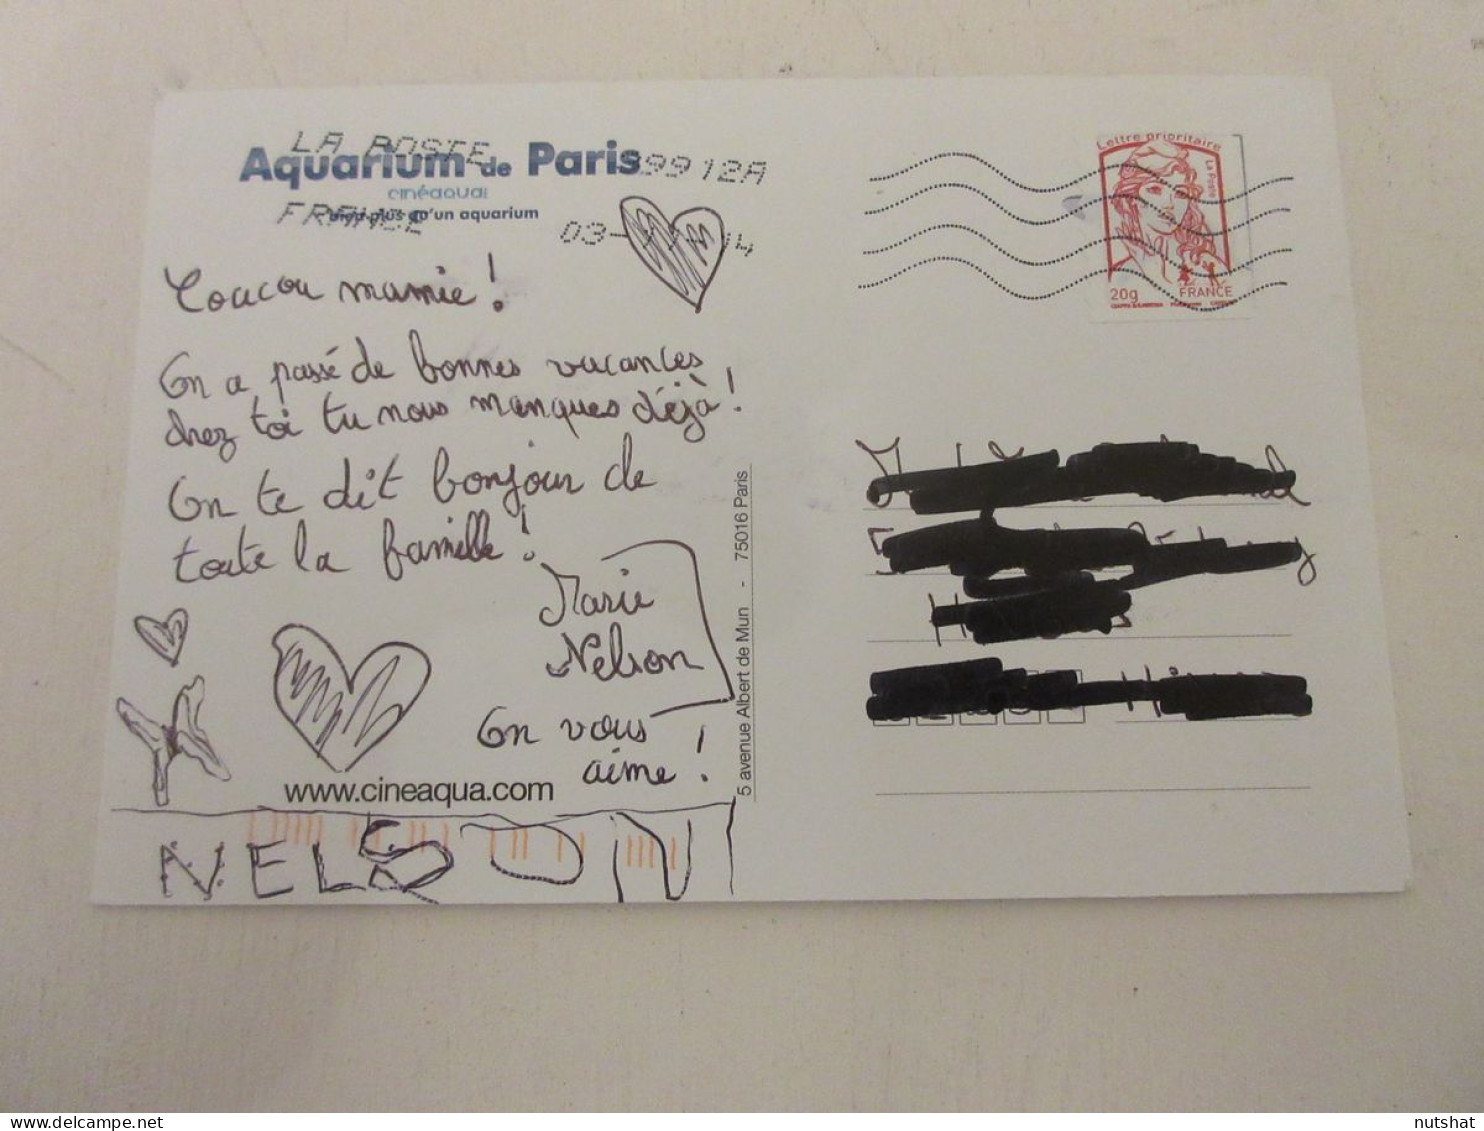 LA POSTE
Aquarium de Paris
99 12A
cinéaqua
FRANCE
qu'un aquarium
03-
14
Coucou mamie !
On a passé de bonnes vacances
chez toi tu nous manques déjà !
On te dit bonjour de
toute la famille !
Marie
Nelson
On vous
aime !
www.cineaqua.com
NELSON
5 avenue Albert de Mun - 75016 Paris
Lettre prioritaire
La Poste
20g FRANCE
nutshat